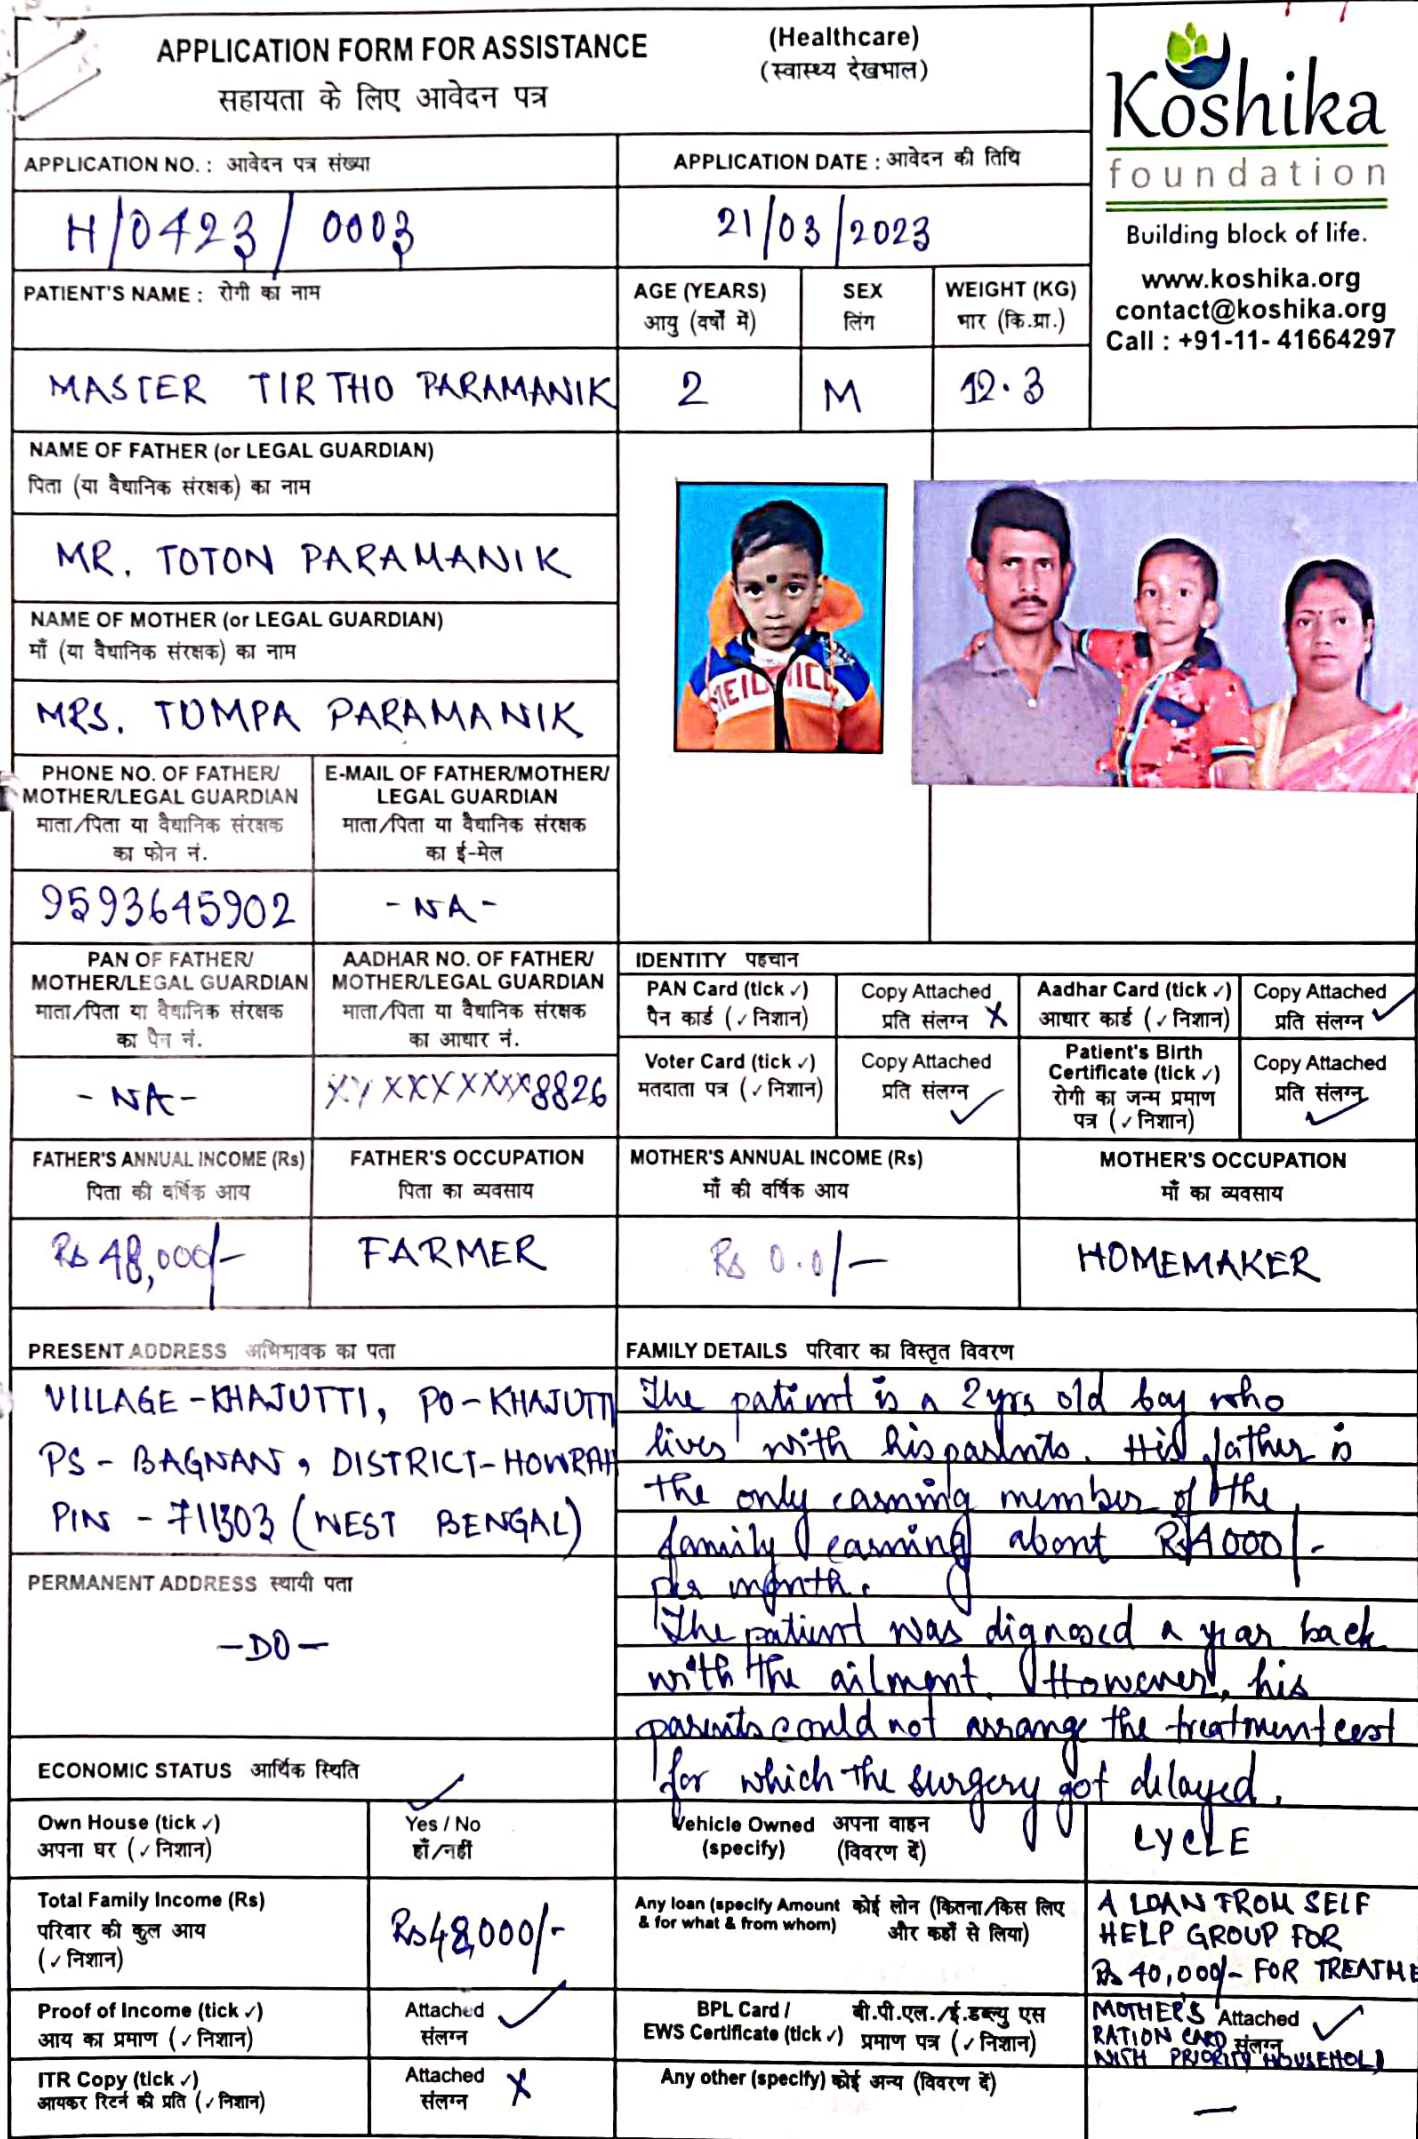 APPLICATION FORM FOR ASSISTANCE
(Healthcare)
सहायता के लिए आवेदन पत्र
(स्वास्थ्य देखभाल)
Koshika
foundation
Building block of life.
www.koshika.org
contact@koshika.org
Call : +91-11- 41664297
APPLICATION NO. : आवेदन पत्र संख्या
APPLICATION DATE : आवेदन की तिथि
H/0423/0003
21/03/2023
PATIENT'S NAME : रोगी का नाम
AGE (YEARS)
आयु (वर्षों में)
SEX
लिंग
WEIGHT (KG)
भार (कि.ग्रा.)
MASTER TIRTHO PARAMANIK
2
M
12.3
NAME OF FATHER (or LEGAL GUARDIAN)
पिता (या वैधानिक संरक्षक) का नाम
MR. TOTON PARAMANIK
NAME OF MOTHER (or LEGAL GUARDIAN)
माँ (या वैधानिक संरक्षक) का नाम
MRS. TUMPA PARAMANIK
PHONE NO. OF FATHER/
MOTHER/LEGAL GUARDIAN
माता/पिता या वैधानिक संरक्षक
का फोन नं.
E-MAIL OF FATHER/MOTHER/
LEGAL GUARDIAN
माता/पिता या वैधानिक संरक्षक
का ई-मेल
9593645902
- NA -
PAN OF FATHER/
MOTHER/LEGAL GUARDIAN
माता/पिता या वैधानिक संरक्षक
का पैन नं.
AADHAR NO. OF FATHER/
MOTHER/LEGAL GUARDIAN
माता/पिता या वैधानिक संरक्षक
का आधार नं.
- NA -
XXXXXXXXX8826
IDENTITY पहचान
PAN Card (tick ✓)
पैन कार्ड (✓ निशान)
Copy Attached
प्रति संलग्न X
Aadhar Card (tick ✓)
आधार कार्ड (✓ निशान)
Copy Attached
प्रति संलग्न ✓
Voter Card (tick ✓)
मतदाता पत्र (✓ निशान)
Copy Attached
प्रति संलग्न ✓
Patient's Birth
Certificate (tick ✓)
रोगी का जन्म प्रमाण
पत्र (✓ निशान)
Copy Attached
प्रति संलग्न ✓
FATHER'S ANNUAL INCOME (Rs)
पिता की वर्षिक आय
FATHER'S OCCUPATION
पिता का व्यवसाय
MOTHER'S ANNUAL INCOME (Rs)
माँ की वर्षिक आय
MOTHER'S OCCUPATION
माँ का व्यवसाय
Rs 48,000/-
FARMER
Rs 0.0/-
HOMEMAKER
PRESENT ADDRESS अभिभावक का पता
VILLAGE - KHAJUTTI, PO - KHAJUTTI
PS - BAGNAN, DISTRICT - HOWRAH
PIN - 711303 (WEST BENGAL)
PERMANENT ADDRESS स्थायी पता
- DO -
FAMILY DETAILS परिवार का विस्तृत विवरण
The patient is a 2 yrs old boy who
lives with his parents. His father is
the only earning member of the
family earning about Rs 4000/-
per month.
The patient was dignosed a year back
with the ailment. However, his
parents could not arrange the treatment cost
for which the surgery got delayed.
ECONOMIC STATUS आर्थिक स्थिति
Own House (tick ✓)
अपना घर (✓ निशान)
Yes / No ✓
हाँ/नहीं
Vehicle Owned अपना वाहन
(specify) (विवरण दें)
CYCLE
Total Family Income (Rs)
परिवार की कुल आय
(✓ निशान)
Rs 48,000/-
Any loan (specify Amount कोई लोन (कितना/किस लिए
& for what & from whom) और कहाँ से लिया)
A LOAN FROM SELF
HELP GROUP FOR
Rs 40,000/- FOR TREATME
Proof of Income (tick ✓)
आय का प्रमाण (✓ निशान)
Attached ✓
संलग्न
BPL Card / बी.पी.एल./ई.डब्ल्यु एस
EWS Certificate (tick ✓) प्रमाण पत्र (✓ निशान)
MOTHER'S Attached ✓
RATION CARD संलग्न
WITH PRIORITY HOUSEHOLD
ITR Copy (tick ✓)
आयकर रिटर्न की प्रति (✓ निशान)
Attached X
संलग्न
Any other (specify) कोई अन्य (विवरण दें)
—